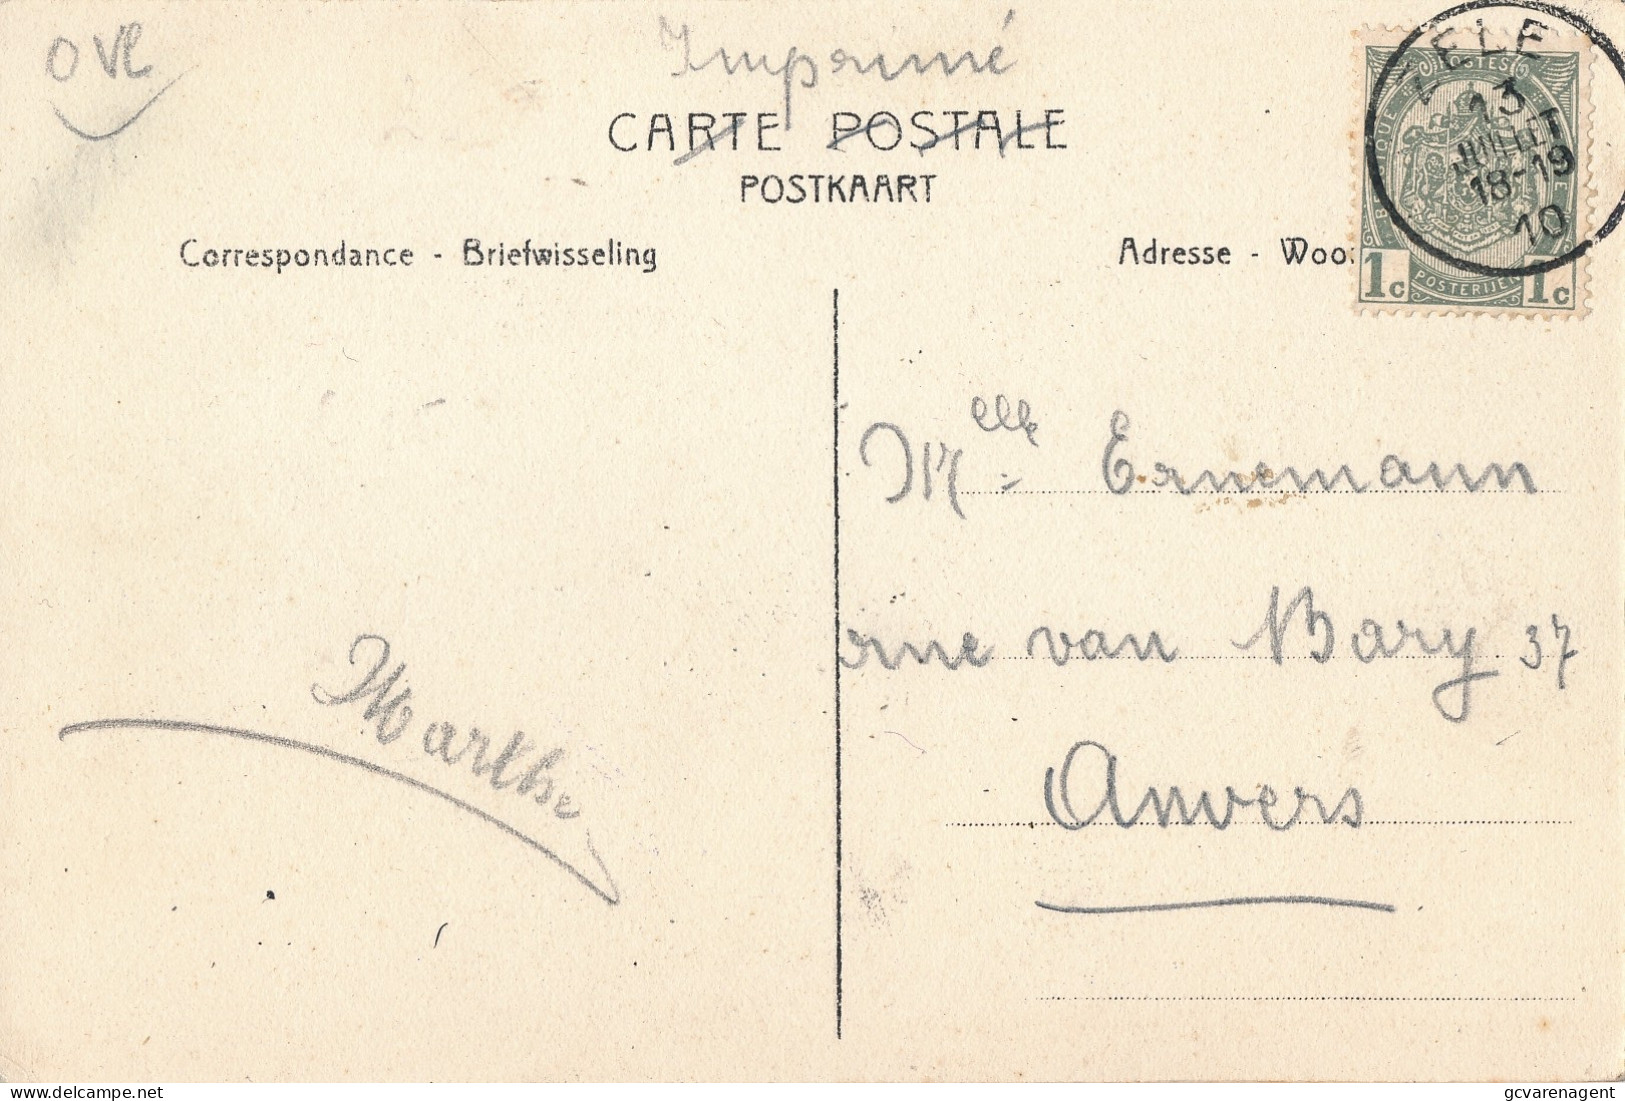 O Vl
Imprimé
CARTE POSTALE
POSTKAART
Correspondance - Briefwisseling
Adresse - Woo
ZELE
13
JUILLET
18-19
10
POSTES
1c POSTERIJEN 1c
Melle Ernemann
rue van Bary 37
Anvers
Marthe
delcampe.net
gcvarenagent